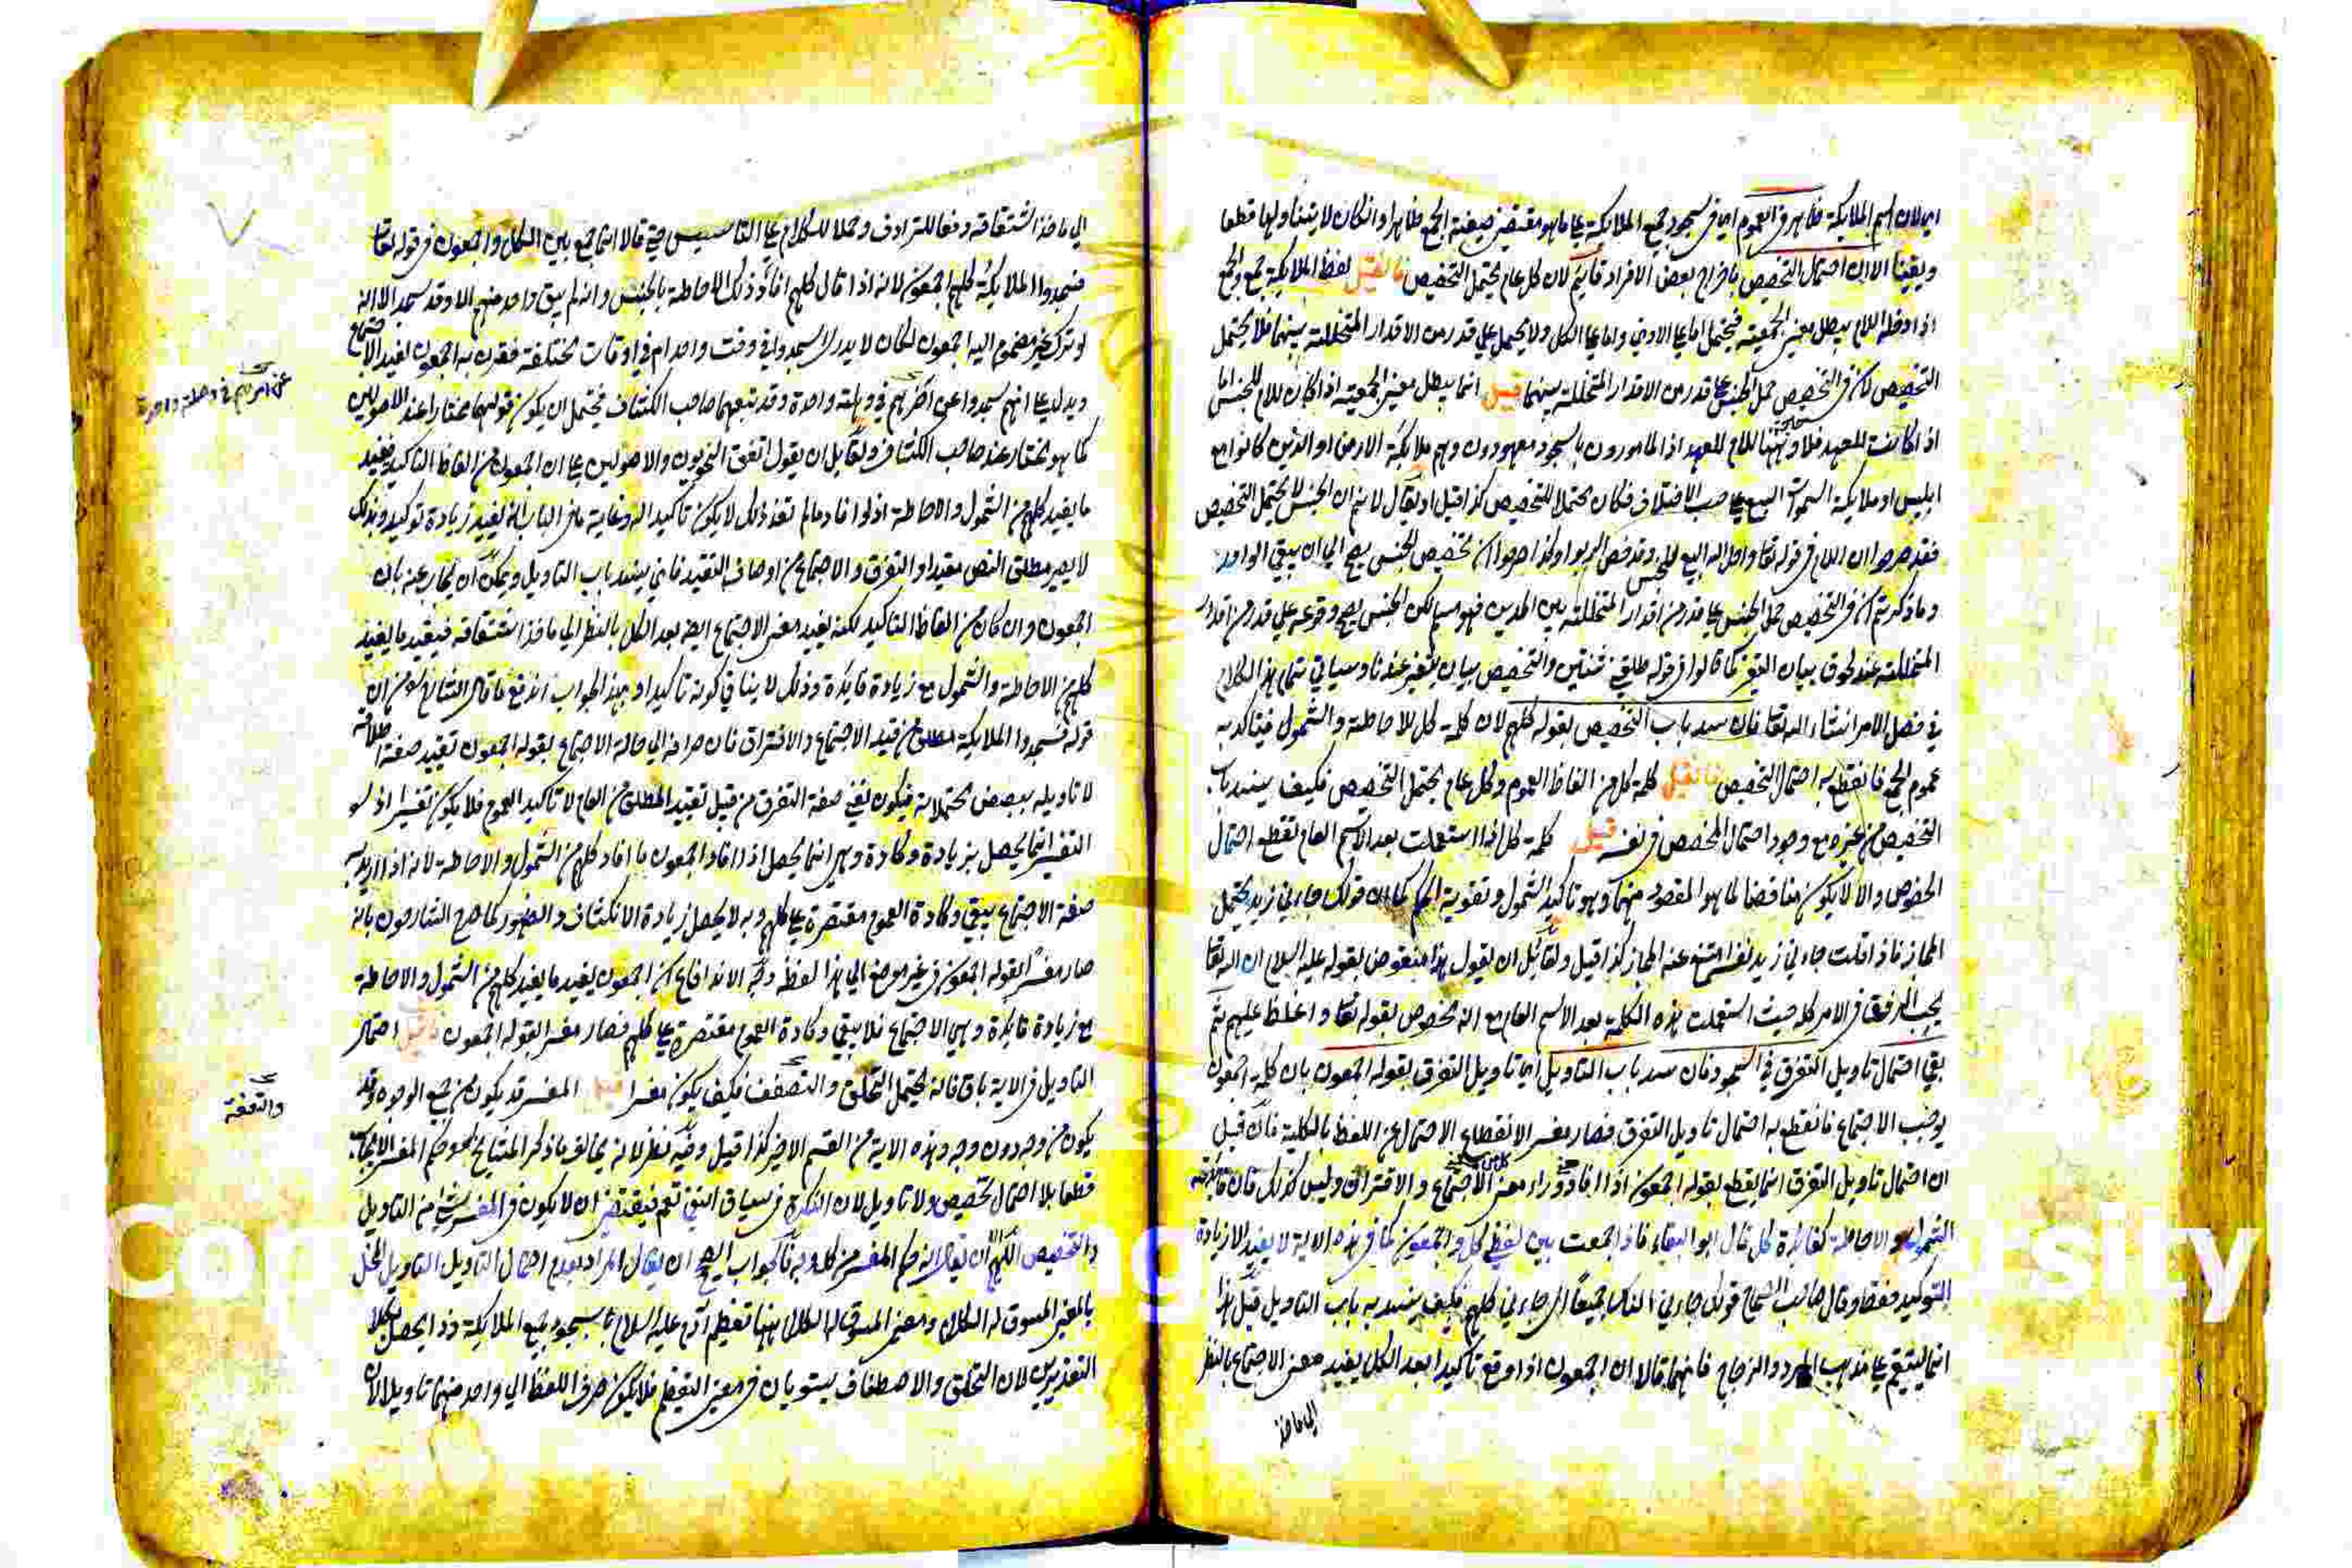 اي لان اسم الملايكة ظاهر في العموم اي في سجود جميع الملايكة على ما هو مقتضى صيغة الجمع ظاهرا وان كان لا يتناولها قطعا
ويقينا الا ان احتمال التخصيص باخراج بعض الافراد قايم لان كل عام يحتمل التخصيص فان قيل لفظ الملايكة جمع والجمع
اذا دخله اللام يبطل معنى الجمعية فيحتمل اما على الادنى واما على الكل ولا يحمل على قدر من الاقدار المتخللة بينهما فلا يحتمل
التخصيص لان في التخصيص حمل الجنس على قدر من الاقدار المتخللة بينهما قيل انما يبطل معنى الجمعية اذا كان اللام للجنس اما
اذا كانت للعهد فلا وههنا اللام للعهد اذ المامورون بالسجود معهودون وهم ملايكة الارض او الذين كانوا مع
ابليس او ملايكة السموات السبع على حسب الاختلاف فكان محتملا للتخصيص كذا قيل او يقال لا نم ان الجنس لا يحتمل التخصيص
فقد صرحوا ان اللام في قوله تعا واحل الله البيع للجنس وقد خص الربوا وكذا صرحوا ان تخصيص الجنس يصح الى ان يبقى الواحد
وما ذكرتم ان في التخصيص حمل الجنس على قدر من اقدار المتخللة بين الحدين فهو مسلم لكن الجنس يصح وقوعه على قدر من اقدار
المتخللة عند لحوق بيان التغير كما قالوا في قوله طلقي ثنتين والتخصيص بيان تغير عندنا وسياتي تمام هذا الكلام
في فصل الامر انشاء الله تعا فان سد باب التخصيص بقوله كلهم لان كلمة كل للاحاطة والشمول فيتاكد به
عموم الجمع فانقطع به احتمال التخصيص فان قيل كلمة كل من الفاظ العموم وكل عام يحتمل التخصيص فكيف ينسد باب
التخصيص من غيره مع وجود احتمال التخصيص في نفسه قيل كلمة كل اذا استعملت بعد الاسم العام تقطع احتمال
الخصوص والا لا يكون مناقضا لما هو المقصود منها وهو تاكيد الشمول وتقوية الحكم كما ان قولك جاءني زيد يحتمل
المجاز فاذا قلت جاءني زيد نفسه امتنع عنه المجاز كذا قيل ولقايل ان يقول هذا منقوض بقوله عليه السلام ان الله تعا
يحب الرفق في الامر كله حيث استعملت هذه الكلمة بعد الاسم العام مع انه مخصوص بقوله تعا واغلظ عليهم ثم
بقي احتمال تاويل التفرق في السجود فان سد باب التاويل اي تاويل التفرق بقوله اجمعون بان كلمة اجمعون
يوجب الاجتماع فانقطع به احتمال تاويل التفرق فصار مفسرا لانقطاع الاحتمال عن اللفظ بالكلية فان قيل
ان احتمال تاويل التفرق انما ينقطع بقوله اجمعون اذا افاد وراء معنى الاجتماع والافتراق وليس كذلك فان فايدته
الشمول والاحاطة كفايدة كل قال ابو البقاء فاذا جمعت بين لفظ كل واجمعون كما في هذه الاية لا يفيد الا زيادة
التوكيد فقط وقال صاحب الصحاح قولك جاءني الناس جميعا اي جاءني كلهم فكيف ينسد به باب التاويل قيل هذا
انما يستقيم على مذهب المبرد والزجاج فانهما قالا ان اجمعون اذا وقع تاكيدا بعد الكل يفيد معنى الاجتماع بالنظر
الى ماخذ
الى ماخذ اشتقاقه دفعا للترادف وحملا للكلام على التاسيس حتى قالا انما جمع بين الكل واجمعون في قوله تعا
فسجدوا الملايكة كلهم اجمعون لانه اذا قال كلهم افاد ذلك الاحاطة بالجنس وانه لم يبق واحد منهم الا وقد سجد الا انه
لو ترك غير مضموم اليه اجمعون لكان لا يدرى اسجدوا في وقت واحد ام في اوقات مختلفة فقرن به اجمعون ليفيد الاجتماع
ويدل على انهم سجدوا عن اخرهم في وهلة واحدة وقد تبعهما صاحب الكشاف فيحتمل ان يكون قولهما مختارا عند الاصوليين
عن اخرهم في وهلة واحدة
كما هو مختار عند صاحب الكشاف ولقايل ان يقول اتفق النحويون والاصوليين على ان اجمعون من الفاظ التاكيد يفيد
ما يفيد كلهم من الشمول والاحاطة اذ لو افاد ما لم تفد ذلك لا يكون تاكيدا له وغاية ما في الباب انه يفيد زيادة توكيد وبذلك
لا يصير مطلق النص مقيدا والتفرق والاجتماع من اوصاف التقييد فانى ينسد باب التاويل ويمكن ان يجاب عنه بان
اجمعون وان كان من الفاظ التاكيد لكنه يفيد معنى الاجتماع ايضا بعد الكل بالنظر الى ماخذ اشتقاقه فيفيد ما يفيد
كلهم من الاحاطة والشمول مع زيادة فايدة وذلك لا ينافي كونه تاكيدا وبهذا الجواب اندفع ما قال الشارحون من ان
قوله فسجدوا الملايكة مطلق من قيد الاجتماع والافتراق فان صرافه الى حالة الاجتماع بقوله اجمعون تقييد صفة اطلاقه
لا تاويله ببعض محتملاته فيكون نفي صفة التفرق من قبيل تقييد المطلق من العام لا تاكيد العموم فلا يكون تفسيرا اذ هو
التفسير انما يحصل بزيادة وكادة وهي انما يحصل اذا افاد اجمعون ما افاد كلهم من الشمول والاحاطة لانه اذا اريد به
صفة الاجتماع يبقى وكادة العموم مقتصرة على كلهم وبه لا يحصل زيادة الانكشاف والظهور كما صرح الشارحون بانه
صار مفسرا لقوله اجمعون في غير موضع الى هذا لفظه وجه الاندفاع ان اجمعون يفيد ما يفيد كلهم من الشمول والاحاطة
مع زيادة فايدة وهي الاجتماع فلا يبقى وكادة العموم مقتصرة على كلهم فصار مفسرا لقوله اجمعون فان قيل احتمال
التاويل في الاية باق فانه يحتمل التحلق والتصفف فكيف يكون مفسرا قيل المفسر قد يكون من جميع الوجوه وقد
يكون من وجه دون وجه وهذه الاية من القسم الاخير كذا قيل وفيه نظر لانه يخالف ما ذكر المشايخ وهو حكم المفسر الايجاب
قطعا بلا احتمال تخصيص ولا تاويل لان النكرة في سياق النفي تعم فيقتضي ان لا يكون في المفسر شيء من التاويل
والتخصيص اللهم الا ان يقال انه حكم المفسر من كل وجه فالجواب الصحيح ان يقال المراد بعدم احتمال التاويل التاويل المخل
بالمعنى المسوق له الكلام ومعنى المسوق له الكلام ههنا تعظيم ادم عليه السلام بسجود جميع الملايكة وذا يحصل بكلا
التقديرين لان التحلق والاصطفاف يستويان في معنى التعظيم فلا يكون صرف اللفظ الى واحد منهما تاويلا لان